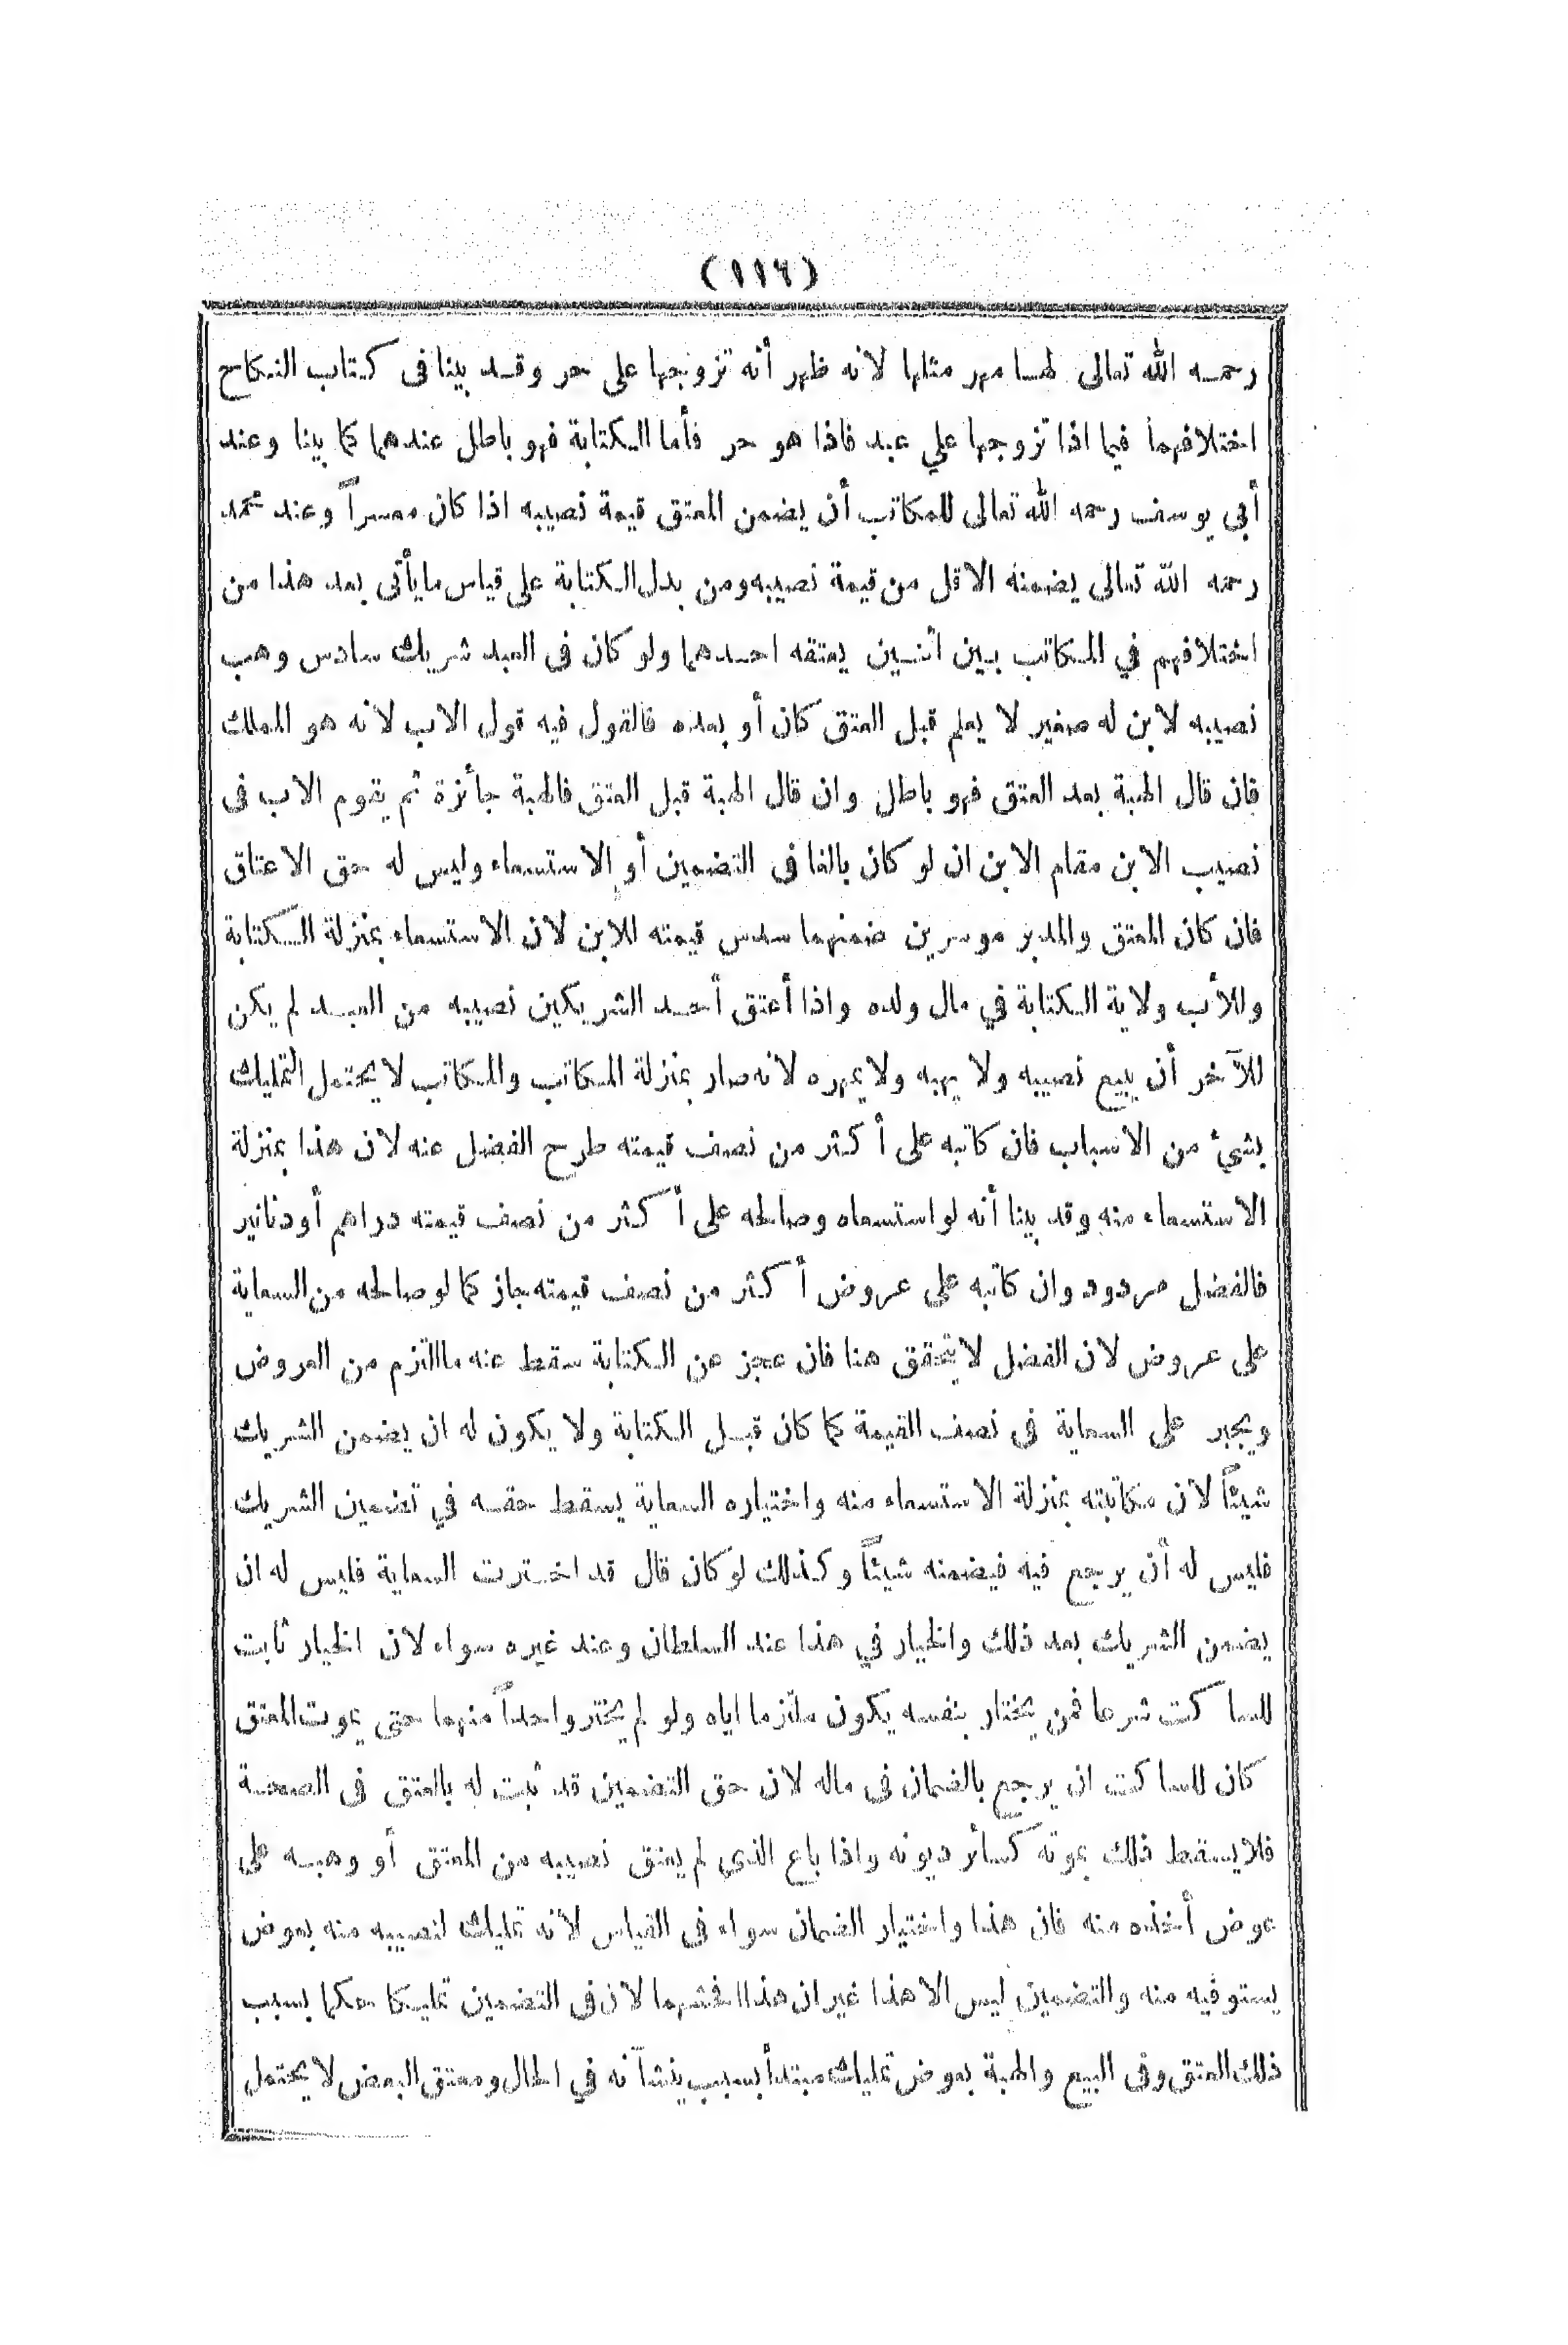 (١١٦)
رحمه الله تعالى لها مهر مثلها لانه ظهر أنه تزوجها على حر وقد بينا فى كتاب النكاح
اختلافهما فيما اذا تزوجها علي عبد فاذا هو حر فأما الكتابة فهو باطل عندهما كما بينا وعند
أبي يوسف رحمه الله تعالى للمكاتب أن يضمن المعتق قيمة نصيبه اذا كان معسراً وعند محمد
رحمه الله تعالى يضمنه الاقل من قيمة نصيبه ومن بدل الكتابة على قياس ما يأتى بعد هذا من
اختلافهم في المكاتب بين اثنين يعتقه احدهما ولو كان فى العبد شريك سادس وهب
نصيبه لابن له صغير لا يعلم قبل العتق كان أو بعده فالقول فيه قول الاب لانه هو المملك
فان قال الهبة بعد العتق فهو باطل وان قال الهبة قبل العتق فالهبة جائزة ثم يقوم الاب فى
نصيب الابن مقام الابن ان لو كان بالغا فى التضمين أو الاستسعاء وليس له حق الاعتاق
فان كان المعتق والمدبر موسرين ضمنهما سدس قيمته للابن لان الاستسعاء بمنزلة الكتابة
وللأب ولاية الكتابة في مال ولده واذا أعتق أحد الشريكين نصيبه من العبد لم يكن
للآخر أن يبيع نصيبه ولا يهبه ولا يمهره لانه صار بمنزلة المكاتب والمكاتب لا يحتمل التمليك
بشئ من الأسباب فان كاتبه على أكثر من نصف قيمته طرح الفضل عنه لان هذا بمنزلة
الاستسعاء منه وقد بينا أنه لو استسعاه وصالحه على أكثر من نصف قيمته دراهم أو دنانير
فالفضل مردود وان كاتبه على عروض أكثر من نصف قيمته جاز كما لو صالحه من السعاية
على عروض لان الفضل لا يتحقق هنا فان عجز عن الكتابة سقط عنه ما التزم من العروض
ويجبر على السعاية فى نصف القيمة كما كان قبل الكتابة ولا يكون له ان يضمن الشريك
شيئاً لان مكاتبته بمنزلة الاستسعاء منه واختياره السعاية يسقط حقه في تضمين الشريك
فليس له أن يرجع فيه فيضمنه شيئاً وكذلك لو كان قال قد اخترت السعاية فليس له ان
يضمن الشريك بعد ذلك والخيار في هذا عند السلطان وعند غيره سواء لان الخيار ثابت
للساكت شرعا فمن يختار بنفسه يكون ملتزما اياه ولو لم يختر واحداً منهما حتى يموت المعتق
كان للساكت ان يرجع بالضمان فى ماله لان حق التضمين قد ثبت له بالعتق فى الصحة
فلا يسقط ذلك بموته كسائر ديونه واذا باع الذى لم يعتق نصيبه من المعتق أو وهبه على
عوض أخذه منه فان هذا واختيار الضمان سواء فى القياس لأنه تمليك لنصيبه منه بعوض
يستوفيه منه والتضمين ليس الا هذا غير ان هذا افحشهما لان فى التضمين تمليكا حكما بسبب
ذلك العتق وفى البيع والهبة بعوض تمليك مبتدأ بسبب ينشآنه في الحال ومعتق البعض لا يحتمل